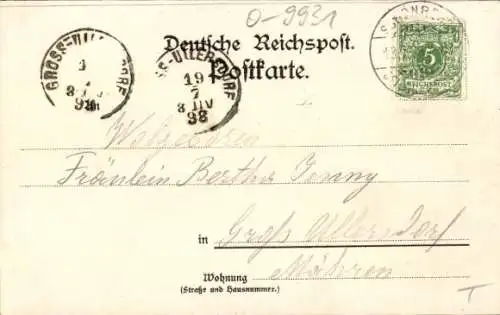 O-9931
Deutsche Reichspost.
Postkarte.
GROSS-ULLERSDORF
98
GROSS-ULLERSDORF
19
7
98
5
REICHSPOST
Wohlgeboren
Fräulein Bertha Jenny
in Groß Ullersdorf
Wohnung Mähren
(Straße und Hausnummer.)
T